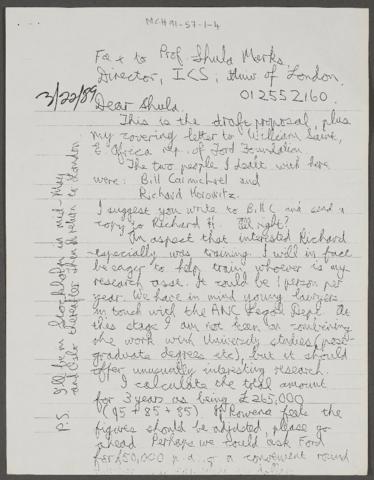 MCH91-57-1-4
Fax to Prof Shula Marks,
Director, ICS, Univ of London.
3/22/89
012552160.
Dear Shula.
This is the draft proposal, plus
my covering letter to William Saint,
E Africa rep. of Ford Foundation.
The two people I dealt with here
were: Bill Carmichael and
Richard Horowitz.
I suggest you write to Bill C and send a
copy to Richard H. All right?
An aspect that interested Richard
especially was training. I will in fact
be eager to help train whoever is my
research asst. It could be 1 person per
year. We have in mind young lawyers
in touch with the ANC Legal Dept. At
this stage I am not keen on combining
the work with University studies (post-
graduate degrees etc), but it should
offer unusually interesting research.
I calculate the total amount
for 3 years as being £265,000
(95 + 85 + 85) If Rowena feels the
figures should be adjusted, please go
ahead. Perhaps we could ask Ford
for £50,000 p.a. or a convenient round
P.S. I'll be in Stockholm in mid-May
and Oslo thereafter then return to London